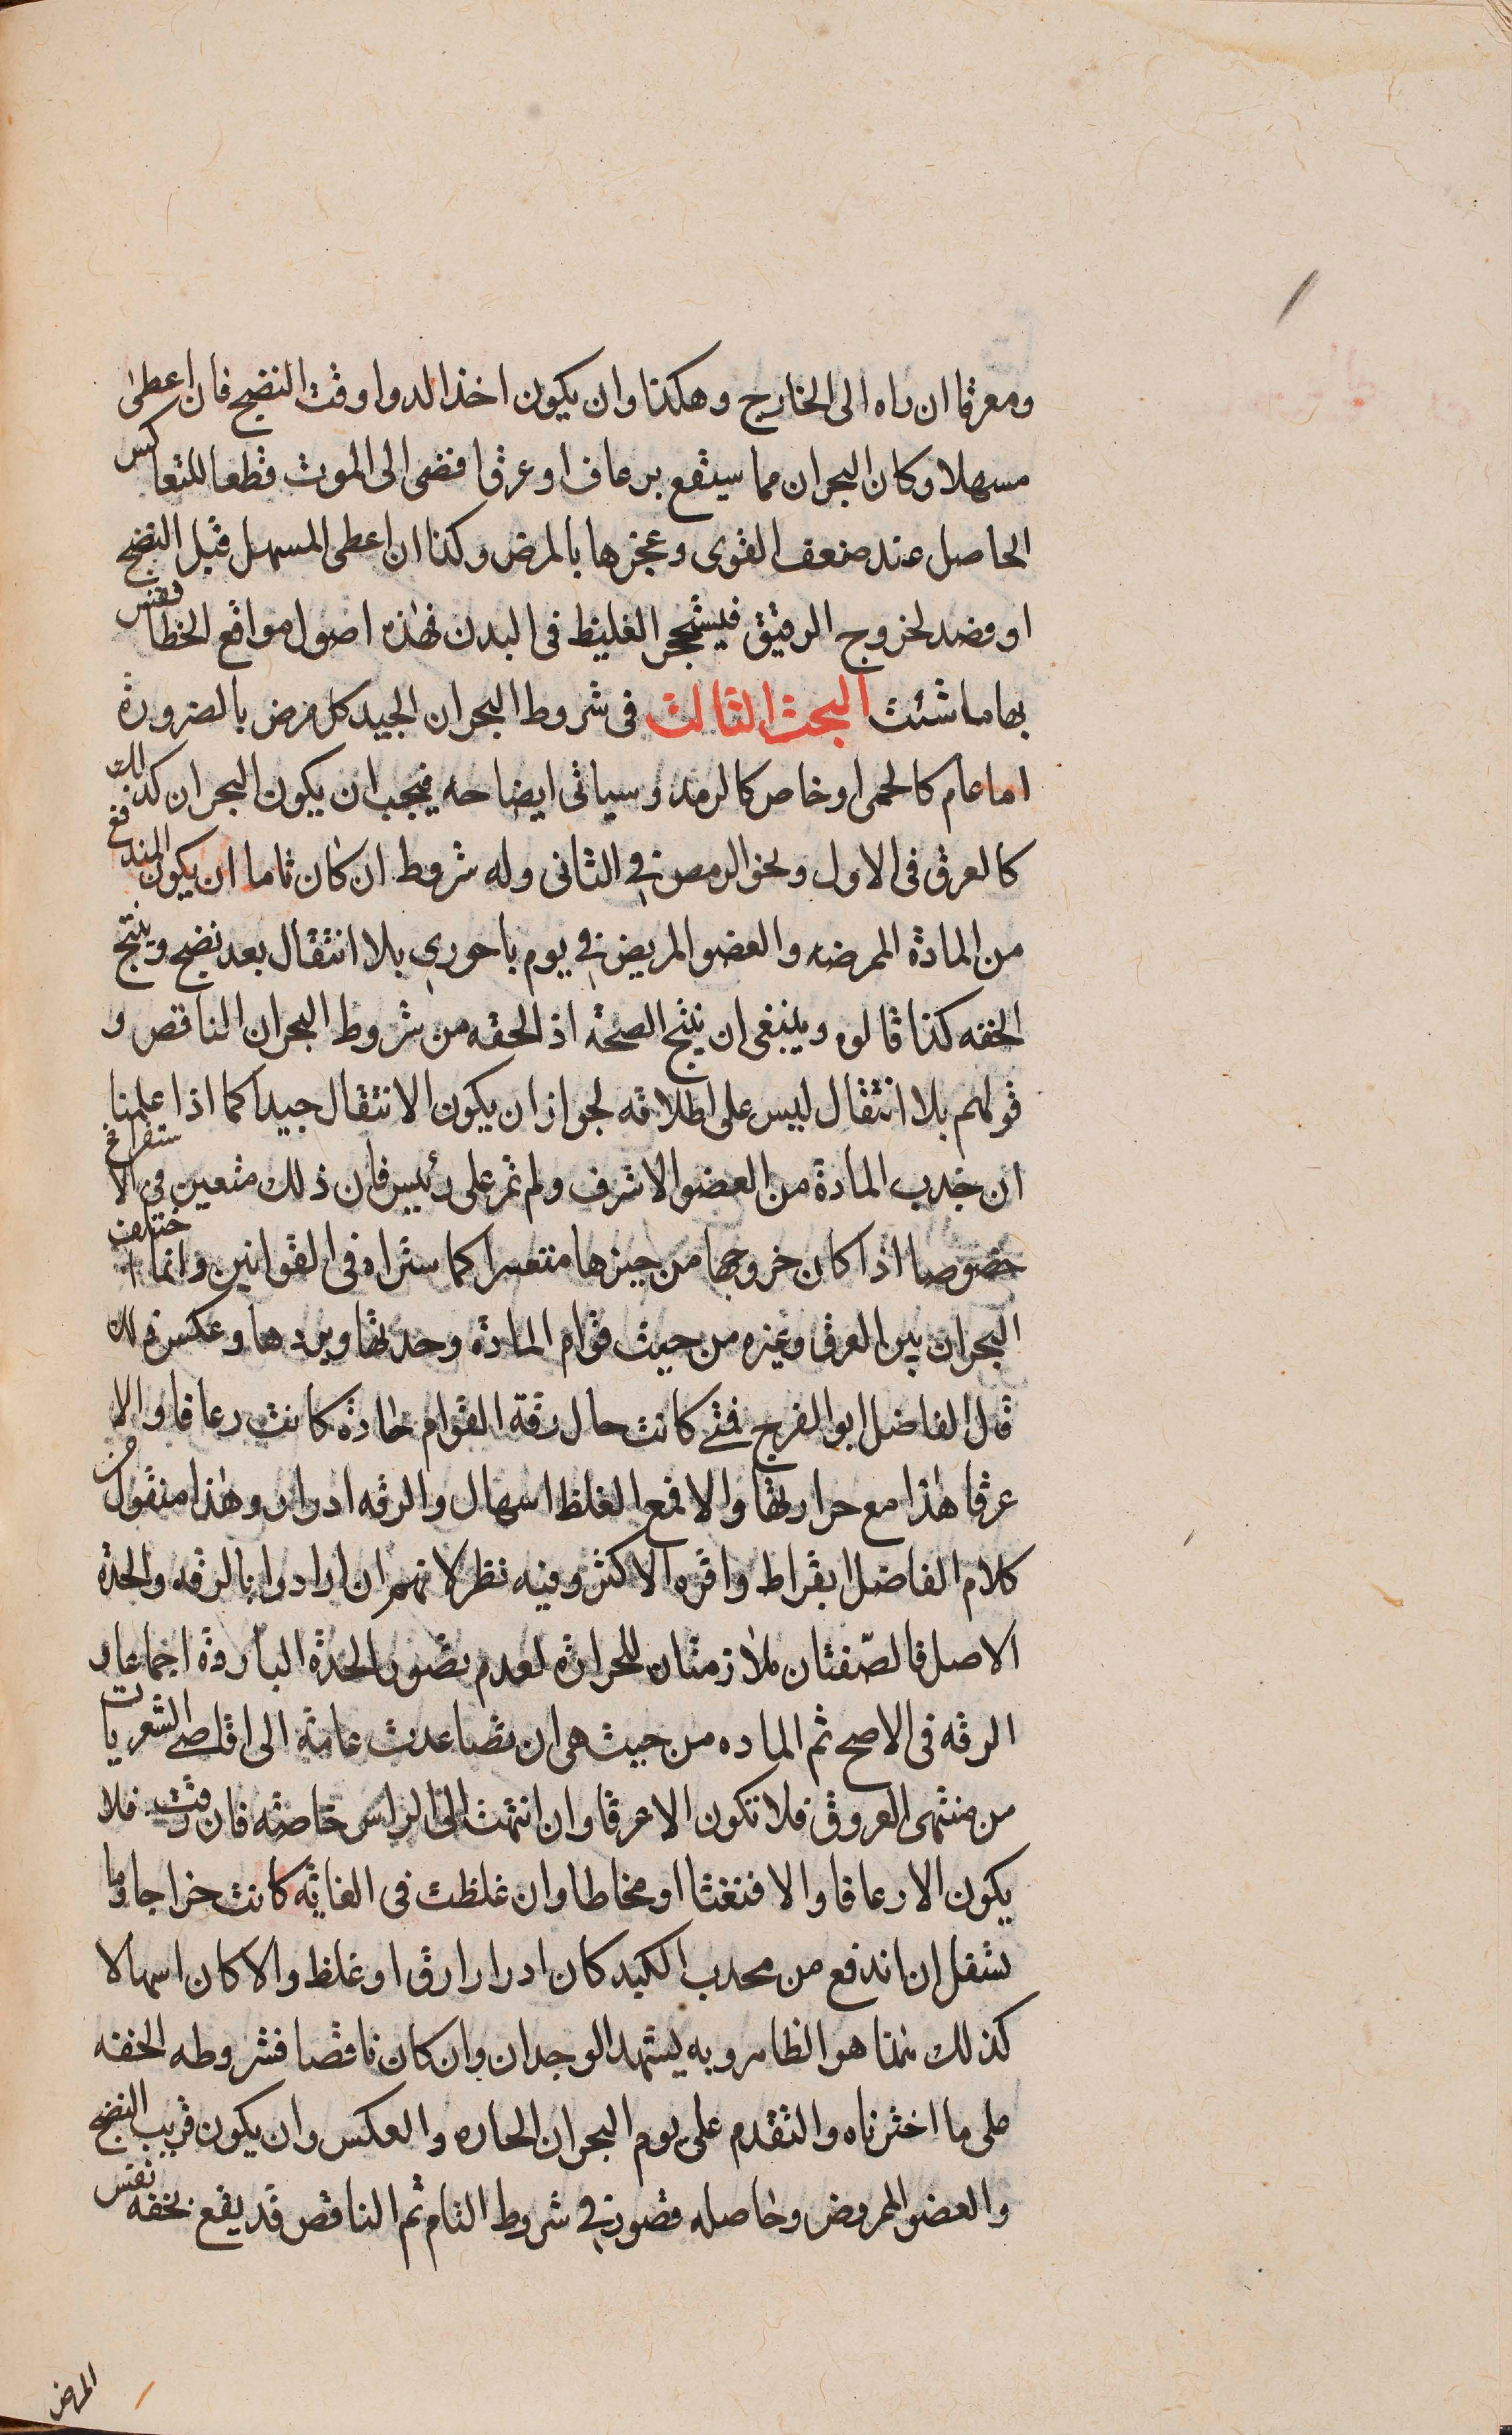 ومعرقا ان راه الى الخارج وهكذا وان يكون اخذ الدوا وقت النضج فان اعطى
مسهلا وكان البحران مما سيقع برعاف او عرق افضى الى الموت قطعا للتعاكس
الحاصل عند ضعف القوى وعجزها بالمرض وكذا ان اعطى المسهل قبل النضج
او فصد لخروج الرقيق فيتحجر الغليظ فى البدن فهذه اصول مواقع الخطا فقس
بها ما شئت البحث الثالث فى شروط البحران الجيد كل مرض بالضرورة
اما عام كالحمى او خاص كالرمد وسياتى ايضاحه فيجب ان يكون البحران كذلك
كالعرق فى الاول ونحو الرمص فى الثانى وله شروط ان كان تاما ان يكون المندفع
من المادة الممرضه والعضو المريض فى يوم باحورى بلا انتقال بعد نضج وينتج
الخفه كذا قالوه وينبغى ان ينتج الصحة اذ الخفه من شروط البحران الناقص و
قولهم بلا انتقال ليس على اطلاقه لجواز ان يكون الانتقال جيدا كما اذا علمنا
ان جذب المادة من العضو الاشرف ولم تمر على رئيس فان ذلك متعين فى الاستفراغ
خصوصا اذا كان خروجها من حيزها متعسرا كما ستراه فى القوانين وانما اختلف
البحران بين العرق وغيره من حيث قوام المادة وحدتها وبردها وعكس ذلك
قال الفاضل ابو الفرج فمتى كانت حال رقة القوام حادة كانت رعافا والا
عرقا هذا مع حرارتها والا فمع الغلظ اسهال والرقه ادرار وهذا منقول من
كلام الفاضل ابقراط واقره الاكثر وفيه نظر لانهم ان ارادوا بالرقه والحدة
الاصل فالصّفتان ملازمتان للحرارة لعدم تصور الحدة الباردة اجماعا و
الرقه فى الاصح ثم الماده من حيث هى ان تصاعدت عامة الى اقاصى الشعريات
من منتهى العروق فلا تكون الا عرقا وان انتهت الى الراس خاصة فان رقت فلا
يكون الا رعافا والا فنغثا او مخاطا وان غلظت فى الغاية كانت خراجا وما
تسفل ان اندفع من محدب الكبد كان ادرارا رق او غلظ والا كان اسهالا
كذلك هذا هو الظاهر وبه يشهد الوجدان وان كان ناقصا فشروطه الخفه
على ما اخترناه والتقدم على يوم البحران الحاره والعكس وان يكون قريب النضج
والعضو الممروض وحاصله قصور فى شروط التام ثم الناقص قد يقع بخفه نفس
المرض